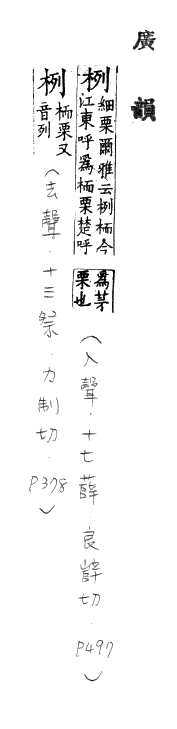 廣韻
栵 細栗爾雅云栵栭今
江東呼爲栭栗楚呼
爲茅
栗也
(入聲.十七薛.良薛切.P497)
栵 栭栗又
音列
(去聲.十三祭.力制切.P378)